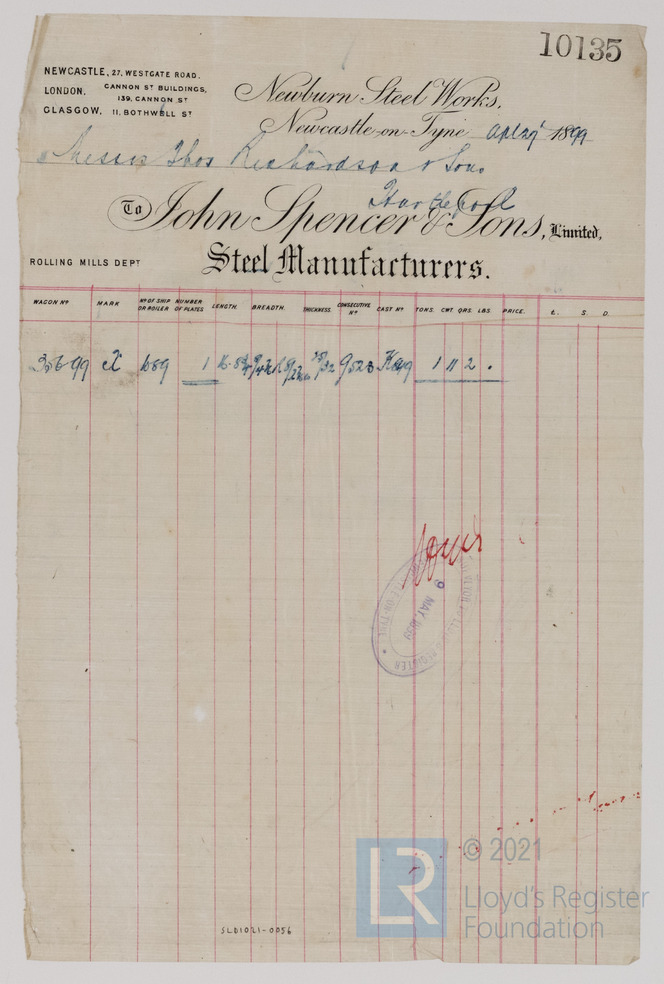 10135
NEWCASTLE, 27, WESTGATE ROAD.
LONDON. CANNON ST BUILDINGS,
139, CANNON ST
GLASGOW, 11, BOTHWELL ST
Newburn Steel Works,
Newcastle-on-Tyne 1899
Messrs Thos Richardson & Sons
Hartlepool
To John Spencer & Sons, Limited,
ROLLING MILLS DEPT
Steel Manufacturers.
WAGON No MARK No OF SHIP OR BOILER NUMBER OF PLATES LENGTH. BREADTH. THICKNESS CONSECUTIVE No CAST No TONS. CWT QRS. LBS PRICE. £. S. D.
356-99 X 689 1 9523 1 11 2 .
9 MAY. 1899
© 2021
LR
Lloyd's Register
Foundation
SLD1021-0056